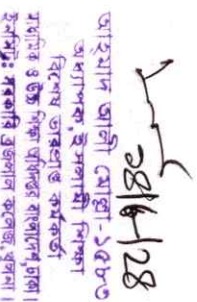 ২৪/৮/২৪
আহম্মদ আলী মোল্লা-১৫৮৩
অধ্যাপক, ইসলামী শিক্ষা
বিশেষ ভারপ্রাপ্ত কর্মকর্তা
মাধ্যমিক ও উচ্চ শিক্ষা অধিদপ্তর বাংলাদেশ, ঢাকা।
ইনসিটু: সরকারি ব্রজলাল কলেজ, খুলনা।